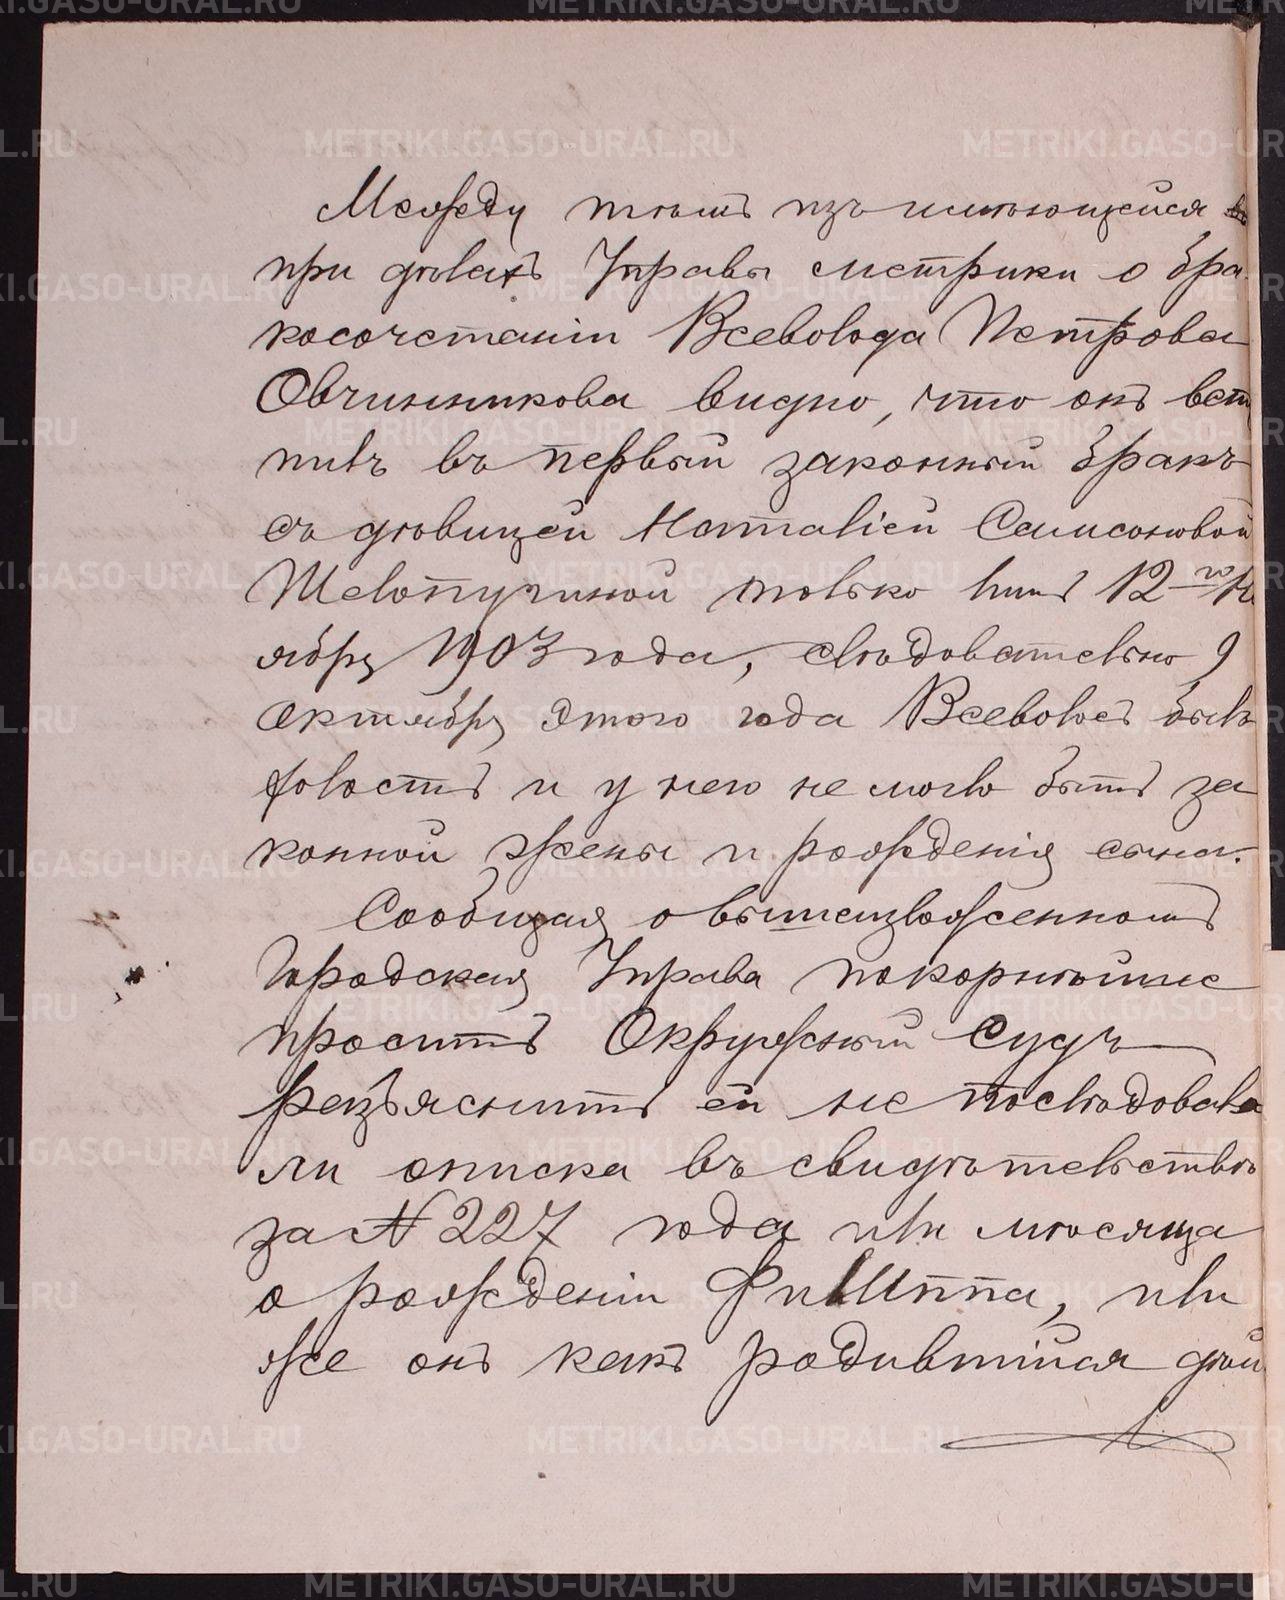 Между тѣмъ изъ имѣющейся
при дѣлахъ Управы метрики о бра
косочетаніи Всеволода Петрова
Овчинникова видно, что онъ всту
пилъ въ первый законный бракъ
съ дѣвицей Наталіей Самсоновой
Шелопугиной только лишь 12-го Но
ября 1903 года, слѣдовательно 9
Октября этого года Всеволодъ былъ
холостъ и у него не могло быть за
конной жены и рожденія сына.
Сообщая о вышеизложенномъ
Городская Управа покорнѣйше
проситъ Окружный Судъ
разъяснить ей не послѣдовала
ли описка въ свидѣтельствѣ
за № 227 года или мѣсяца
о рожденіи Филиппа, или
же онъ какъ родившійся дѣй
METRIKI.GASO-URAL.RU